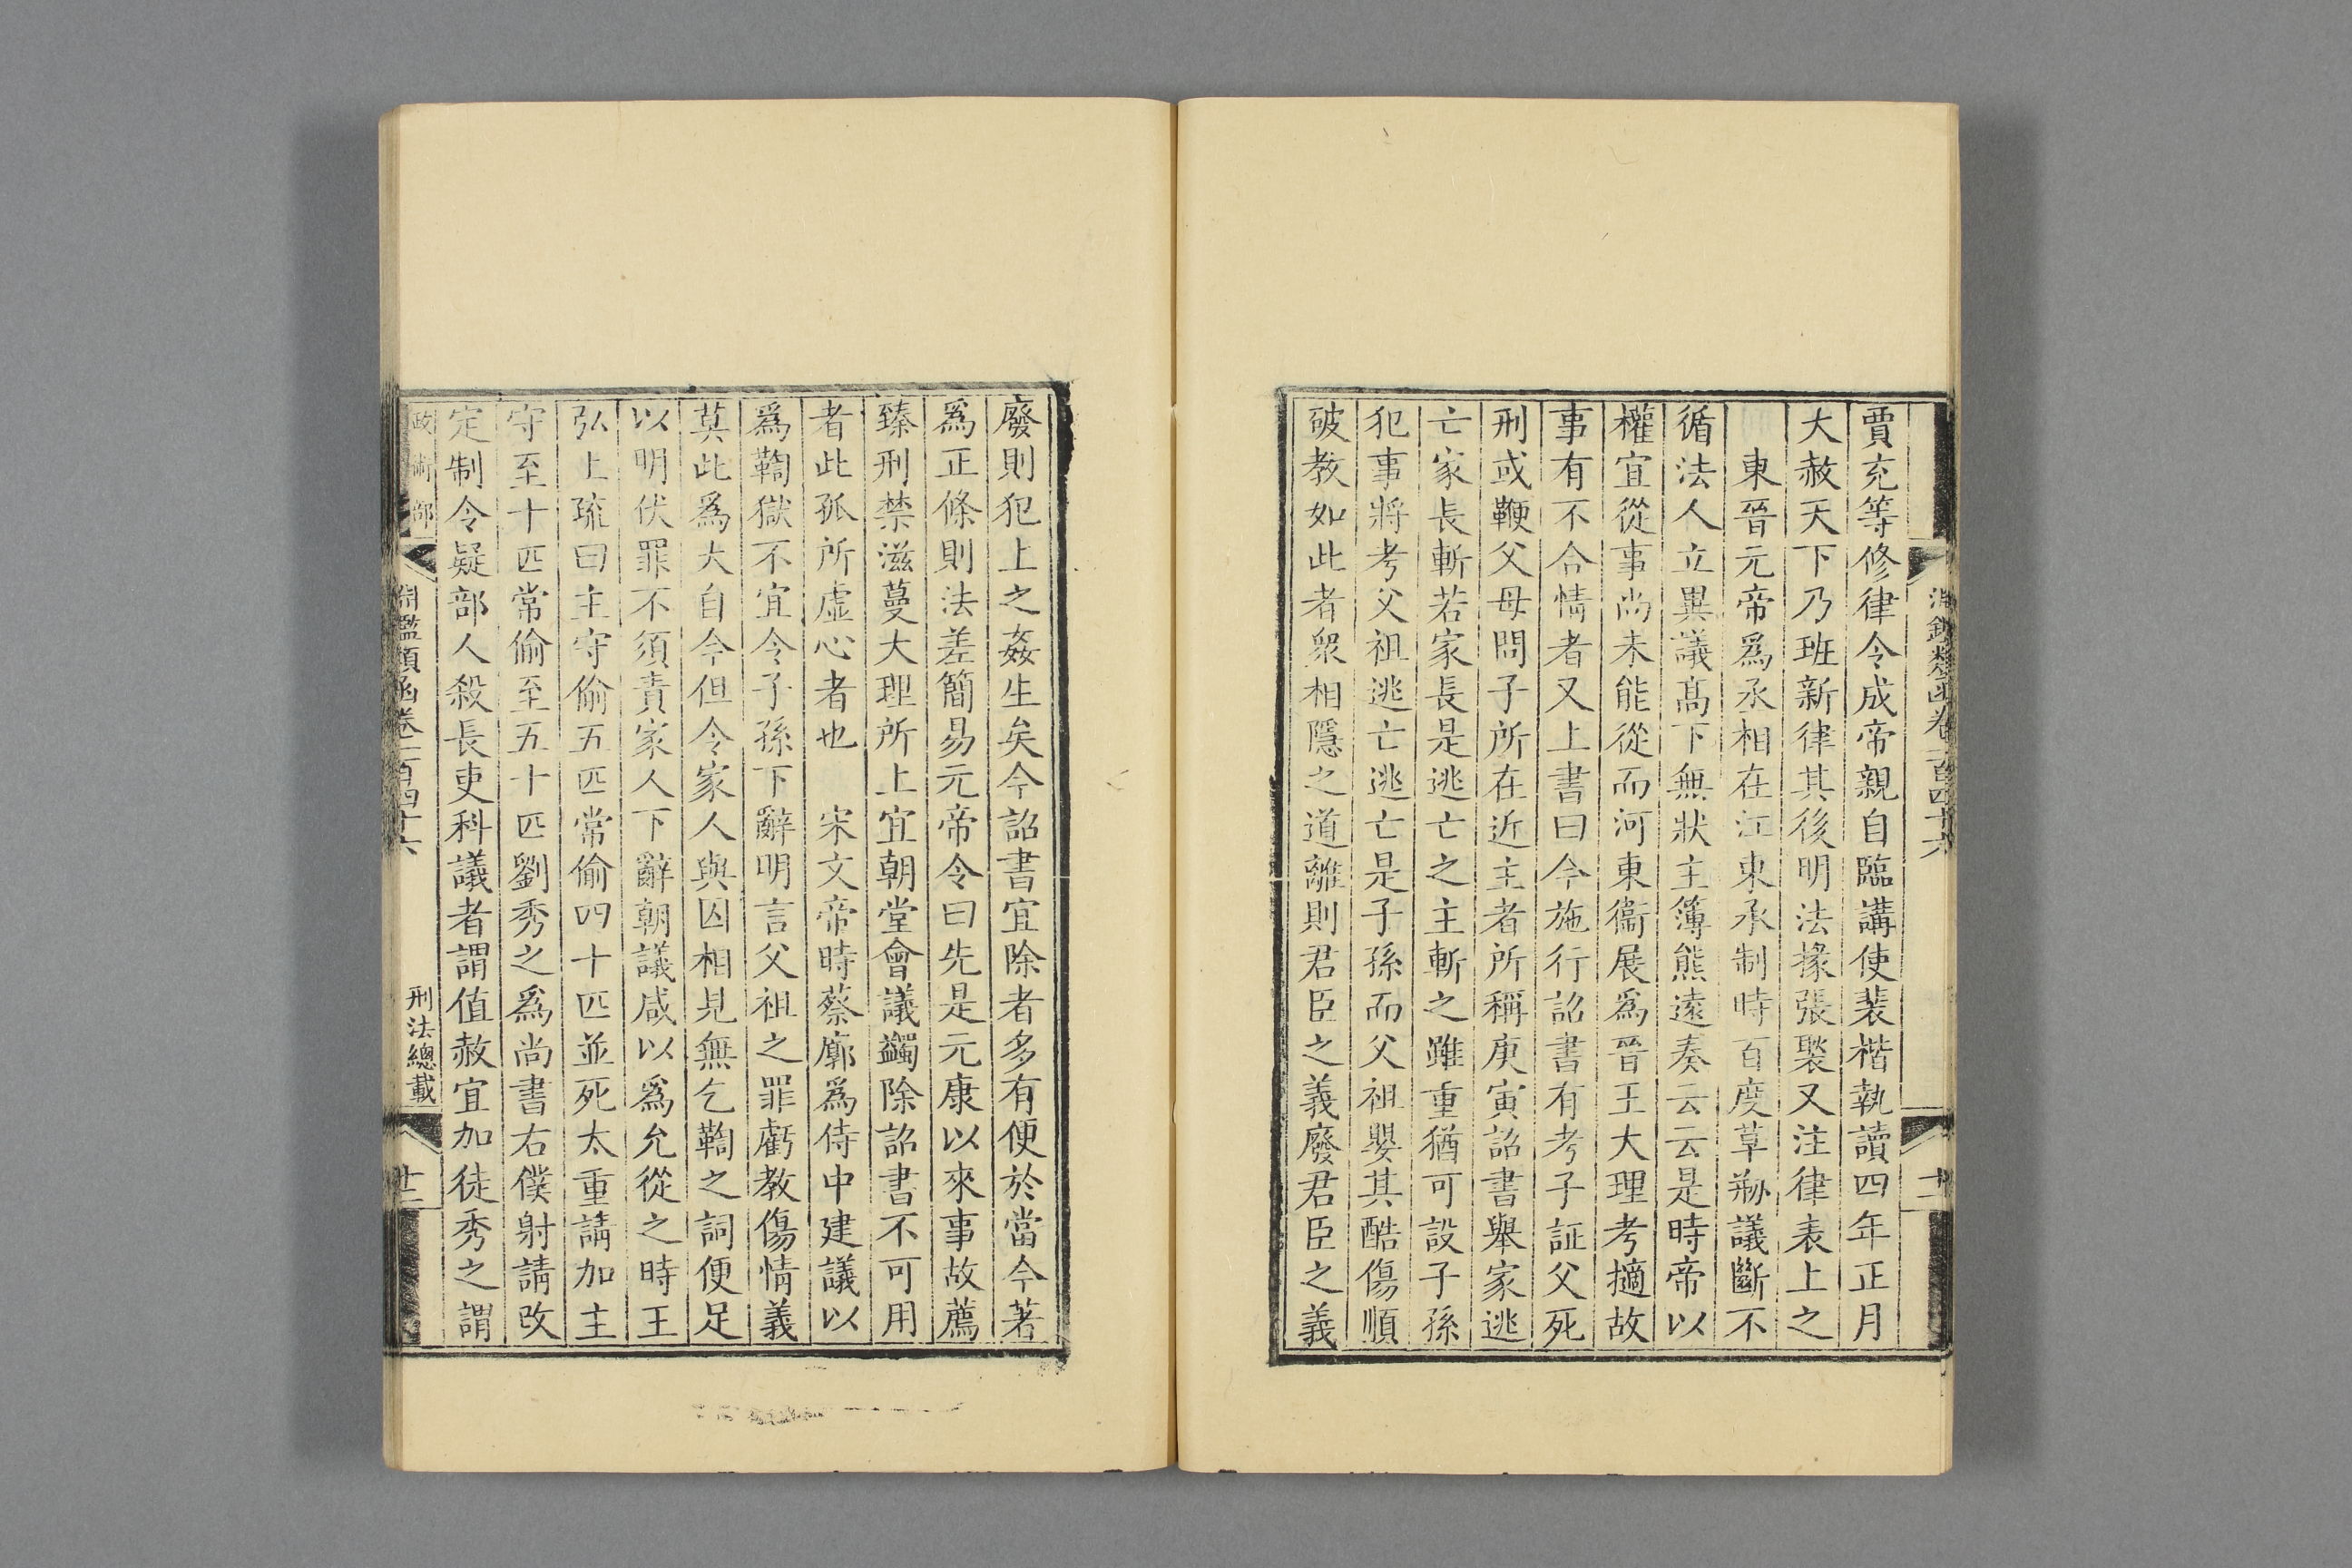 賈充等修律令成帝親自臨講使裴楷執讀四年正月
大赦天下乃班新律其後明法掾張裴又注律表上之
東晉元帝爲丞相在江東承制時百度草刱議斷不
循法人立異議髙下無狀主簿熊遠奏云云是時帝以
權宜從事尚未能從而河東衞展爲晉王大理考擿故
事有不合情者又上書曰今施行詔書有考子証父死
刑或鞭父母問子所在近主者所稱庚寅詔書舉家逃
亡家長斬若家長是逃亡之主斬之雖重猶可設子孫
犯事將考父祖逃亡逃亡是子孫而父祖嬰其酷傷順
破教如此者衆相隱之道離則君臣之義廢君臣之義
廢則犯上之姦生矣今詔書宜除者多有便於當今著
爲正條則法差簡易元帝令曰先是元康以來事故薦
臻刑禁滋蔓大理所上宜朝堂會議蠲除詔書不可用
者此孤所虛心者也 宋文帝時蔡廓爲侍中建議以
爲鞫獄不宜令子孫下辭明言父祖之罪虧教傷情義
莫此爲大自今但令家人與囚相見無乞鞫之詞便足
以明伏罪不須責家人下辭朝議咸以爲允從之時王
弘上疏曰主守偷五匹常偷四十匹並死太重請加主
守至十匹常偷至五十匹劉秀之爲尚書右僕射請改
定制令疑部人殺長吏科議者謂值赦宜加徒秀之謂
政術部 淵鑑類函卷一百四十六 刑法總載